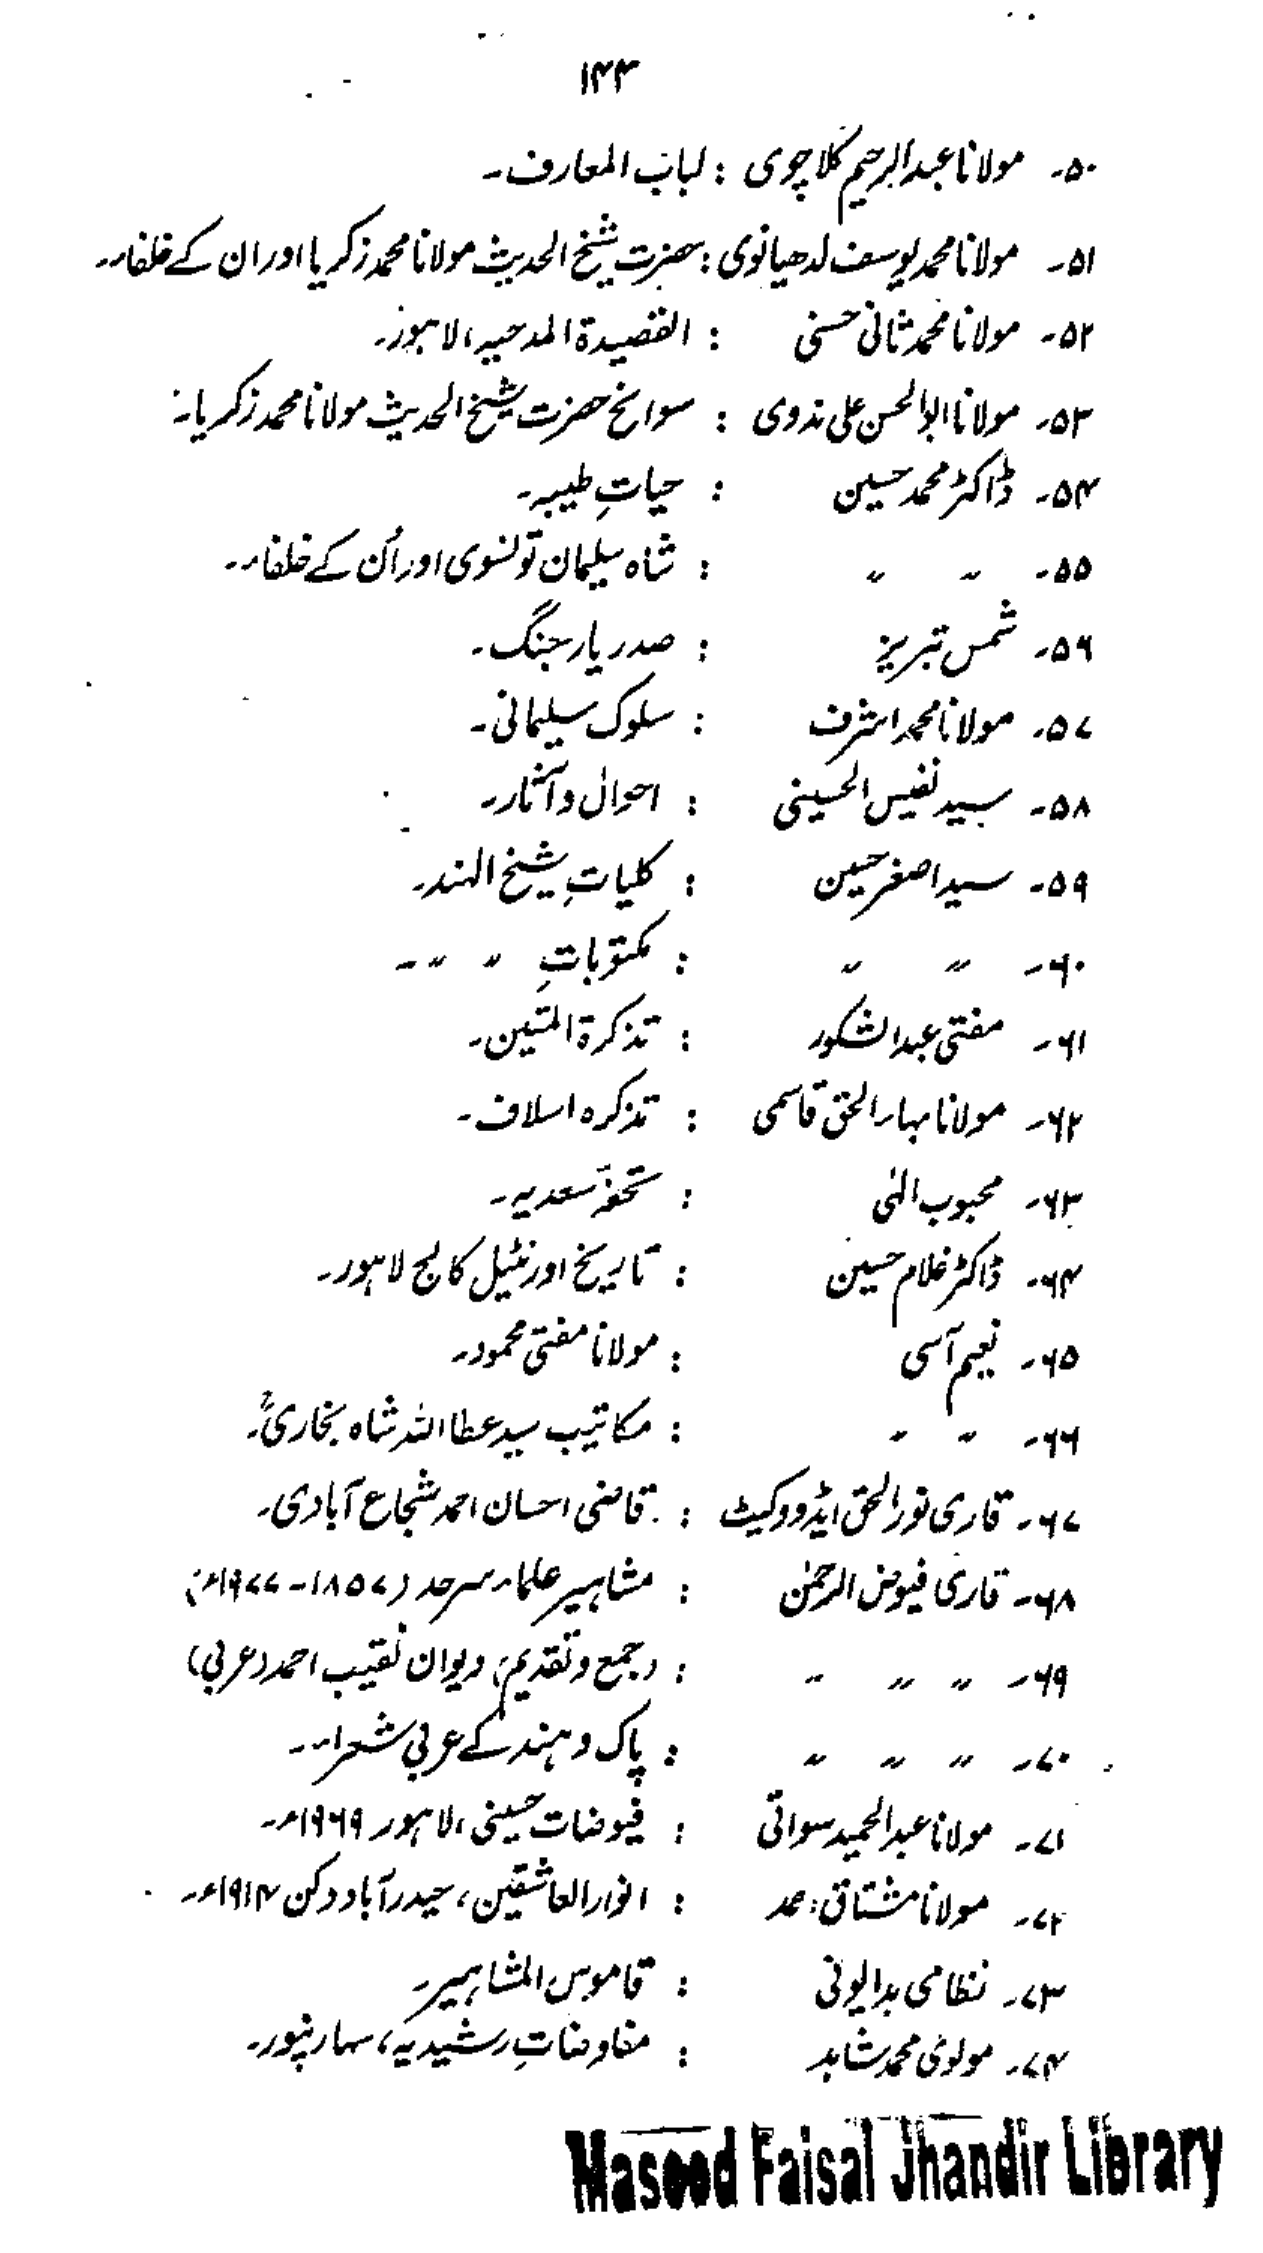 ۱۴۴
۵۰۔ مولانا عبدالرحیم کلاچوی : لباب المعارف۔
۵۱۔ مولانا محمد یوسف لدھیانوی : حضرت شیخ الحدیث مولانا محمد زکریا اور ان کے خلفاء۔
۵۲۔ مولانا محمد ثانی حسنی : القصیدۃ المدحیہ، لاہور۔
۵۳۔ مولانا ابوالحسن علی ندوی : سوانح حضرت شیخ الحدیث مولانا محمد زکریا۔
۵۴۔ ڈاکٹر محمد حسین : حیاتِ طیبہ۔
۵۵۔ 〃 〃 : شاہ سلیمان تونسوی اور اُن کے خلفاء۔
۵۶۔ شمس تبریز : صدر یار جنگ۔
۵۷۔ مولانا محمد اشرف : سلوک سلیمانی۔
۵۸۔ سید نفیس الحسینی : احوال و آثار۔
۵۹۔ سید اصغر حسین : کلیاتِ شیخ الہند۔
۶۰۔ 〃 〃 : مکتوباتِ 〃 〃۔
۶۱۔ مفتی عبدالشکور : تذکرۃ المتین۔
۶۲۔ مولانا بہاء الحق قاسمی : تذکرہ اسلاف۔
۶۳۔ محبوب الٰہی : تحفۂ سعدیہ۔
۶۴۔ ڈاکٹر غلام حسین : تاریخ اورنٹیل کالج لاہور۔
۶۵۔ نعیم آسی : مولانا مفتی محمود۔
۶۶۔ 〃 〃 : مکاتیب سید عطااللہ شاہ بخاریؒ۔
۶۷۔ قاری نورالحق ایڈووکیٹ : قاضی احسان احمد شجاع آبادی۔
۶۸۔ قاری فیوض الرحمٰن : مشاہیر علماء سرحد (۱۸۵۷ - ۱۹۷۷ء)
۶۹۔ 〃 〃 〃 : (جمع و تقدیم) دیوان نقیب احمد (عربی)
۷۰۔ 〃 〃 〃 : پاک و ہند کے عربی شعراء۔
۷۱۔ مولانا عبدالحمید سواتی : فیوضات حسینی، لاہور ۱۹۶۹ء۔
۷۲۔ مولانا مشتاق احمد : انوارالعاشقین، حیدرآباد دکن ۱۹۱۴ء۔
۷۳۔ نظامی بدایونی : قاموس المشاہیر۔
۷۴۔ مولوی محمد شاہد : مفاوضاتِ رشیدیہ، سہارنپور۔
Masood Faisal Jhandir Library